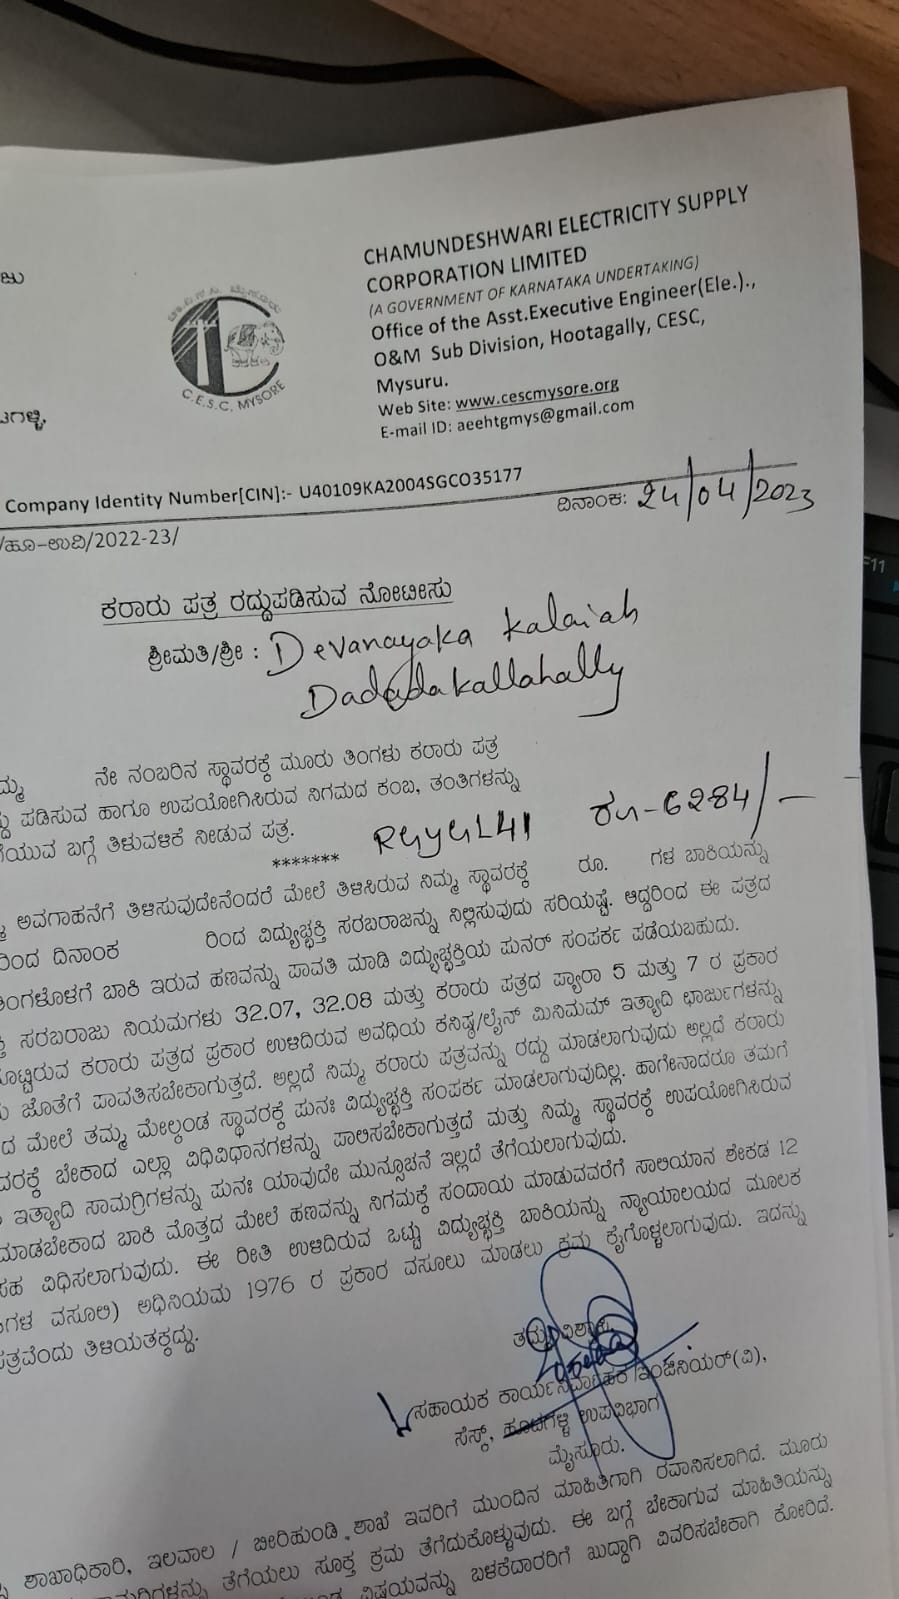 CHAMUNDESHWARI ELECTRICITY SUPPLY
CORPORATION LIMITED
(A GOVERNMENT OF KARNATAKA UNDERTAKING)
Office of the Asst.Executive Engineer(Ele.).,
O&M Sub Division, Hootagally, CESC,
Mysuru.
Web Site: www.cescmysore.org
E-mail ID: aeehtgmys@gmail.com
C.E.S.C. MYSORE
Company Identity Number[CIN]:- U40109KA2004SGCO35177
ದಿನಾಂಕ: 24/04/2023
/ಹೂ-ಉವಿ/2022-23/
ಕರಾರು ಪತ್ರ ರದ್ದುಪಡಿಸುವ ನೋಟೀಸು
ಶ್ರೀಮತಿ/ಶ್ರೀ : Devanayaka Kalaiah
Dadadakallahally
ನೇ ನಂಬರಿನ ಸ್ಥಾವರಕ್ಕೆ ಮೂರು ತಿಂಗಳು ಕರಾರು ಪತ್ರ
ಪಡಿಸುವ ಹಾಗೂ ಉಪಯೋಗಿಸಿರುವ ನಿಗಮದ ಕಂಬ, ತಂತಿಗಳನ್ನು
ಯುವ ಬಗ್ಗೆ ತಿಳುವಳಿಕೆ ನೀಡುವ ಪತ್ರ.
******* RGYGL41 ರೂ-6284/-
ಅವಗಾಹನೆಗೆ ತಿಳಿಸುವುದೇನೆಂದರೆ ಮೇಲೆ ತಿಳಿಸಿರುವ ನಿಮ್ಮ ಸ್ಥಾವರಕ್ಕೆ ರೂ. ಗಳ ಬಾಕಿಯನ್ನು
ರಿಂದ ದಿನಾಂಕ ರಿಂದ ವಿದ್ಯುಚ್ಛಕ್ತಿ ಸರಬರಾಜನ್ನು ನಿಲ್ಲಿಸುವುದು ಸರಿಯಷ್ಟೆ. ಆದ್ದರಿಂದ ಈ ಪತ್ರದ
ತಿಂಗಳೊಳಗೆ ಬಾಕಿ ಇರುವ ಹಣವನ್ನು ಪಾವತಿ ಮಾಡಿ ವಿದ್ಯುಚ್ಛಕ್ತಿಯ ಪುನರ್ ಸಂಪರ್ಕ ಪಡೆಯಬಹುದು.
ಸರಬರಾಜು ನಿಯಮಗಳು 32.07, 32.08 ಮತ್ತು ಕರಾರು ಪತ್ರದ ಪ್ಯಾರಾ 5 ಮತ್ತು 7 ರ ಪ್ರಕಾರ
ೊಟ್ಟಿರುವ ಕರಾರು ಪತ್ರದ ಪ್ರಕಾರ ಉಳಿದಿರುವ ಅವಧಿಯ ಕನಿಷ್ಠ/ಲೈನ್ ಮಿನಿಮಮ್ ಇತ್ಯಾದಿ ಛಾರ್ಜುಗಳನ್ನು
ಜೊತೆಗೆ ಪಾವತಿಸಬೇಕಾಗುತ್ತದೆ. ಅಲ್ಲದೆ ನಿಮ್ಮ ಕರಾರು ಪತ್ರವನ್ನು ರದ್ದು ಮಾಡಲಾಗುವುದು ಅಲ್ಲದೆ ಕರಾರು
ದ ಮೇಲೆ ತಮ್ಮ ಮೇಲ್ಕಂಡ ಸ್ಥಾವರಕ್ಕೆ ಪುನಃ ವಿದ್ಯುಚ್ಛಕ್ತಿ ಸಂಪರ್ಕ ಮಾಡಲಾಗುವುದಿಲ್ಲ. ಹಾಗೇನಾದರೂ ತಮಗೆ
ವರಕ್ಕೆ ಬೇಕಾದ ಎಲ್ಲಾ ವಿಧಿವಿಧಾನಗಳನ್ನು ಪಾಲಿಸಬೇಕಾಗುತ್ತದೆ ಮತ್ತು ನಿಮ್ಮ ಸ್ಥಾವರಕ್ಕೆ ಉಪಯೋಗಿಸಿರುವ
ಇತ್ಯಾದಿ ಸಾಮಗ್ರಿಗಳನ್ನು ಪುನಃ ಯಾವುದೇ ಮುನ್ಸೂಚನೆ ಇಲ್ಲದೆ ತೆಗೆಯಲಾಗುವುದು.
ಮಾಡಬೇಕಾದ ಬಾಕಿ ಮೊತ್ತದ ಮೇಲೆ ಹಣವನ್ನು ನಿಗಮಕ್ಕೆ ಸಂದಾಯ ಮಾಡುವವರೆಗೆ ಸಾಲಿಯಾನ ಶೇಕಡ 12
ಸಹ ವಿಧಿಸಲಾಗುವುದು. ಈ ರೀತಿ ಉಳಿದಿರುವ ಒಟ್ಟು ವಿದ್ಯುಚ್ಛಕ್ತಿ ಬಾಕಿಯನ್ನು ನ್ಯಾಯಾಲಯದ ಮೂಲಕ
ಗಳ ವಸೂಲಿ) ಅಧಿನಿಯಮ 1976 ರ ಪ್ರಕಾರ ವಸೂಲು ಮಾಡಲು ಕ್ರಮ ಕೈಗೊಳ್ಳಲಾಗುವುದು. ಇದನ್ನು
ಪತ್ರವೆಂದು ತಿಳಿಯತಕ್ಕದ್ದು.
ಸಹಾಯಕ ಕಾರ್ಯನಿರ್ವಾಹಕ ಇಂಜಿನಿಯರ್(ವಿ),
ಸೆಸ್ಕ್, ಹೂಟಗಳ್ಳಿ ಉಪವಿಭಾಗ
ಮೈಸೂರು.
ಶಾಖಾಧಿಕಾರಿ, ಇಲವಾಲ / ಬೀರಿಹುಂಡಿ ಶಾಖೆ ಇವರಿಗೆ ಮುಂದಿನ ಮಾಹಿತಿಗಾಗಿ ರವಾನಿಸಲಾಗಿದೆ. ಮೂರು
ತೆಗೆಯಲು ಸೂಕ್ತ ಕ್ರಮ ತೆಗೆದುಕೊಳ್ಳುವುದು. ಈ ಬಗ್ಗೆ ಬೇಕಾಗುವ ಮಾಹಿತಿಯನ್ನು
ವಿಷಯವನ್ನು ಬಳಕೆದಾರರಿಗೆ ಖುದ್ದಾಗಿ ವಿವರಿಸಬೇಕಾಗಿ ಕೋರಿದೆ.